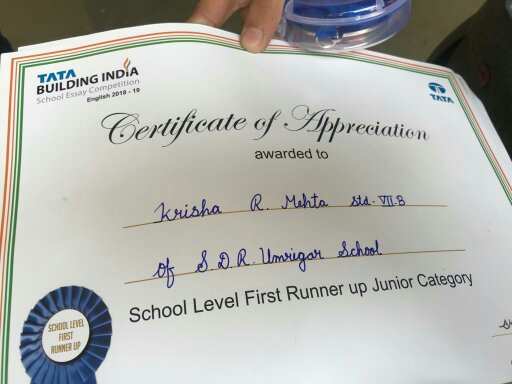 TATA
BUILDING INDIA
School Essay Competition
English 2018 - 19
TATA
Certificate of Appreciation
awarded to
Krisha R. Mehta std. VII.B
of S.D.R. Umrigar School
School Level First Runner up Junior Category
SCHOOL LEVEL
FIRST
RUNNER UP